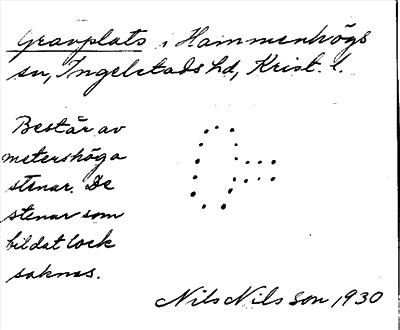 Gravplats i Hammenhögs
sn, Ingelstads hd, Krist. l.
Består av
metershöga
stenar. De
stenar som
bildat lock
saknas.
Nils Nilsson 1930